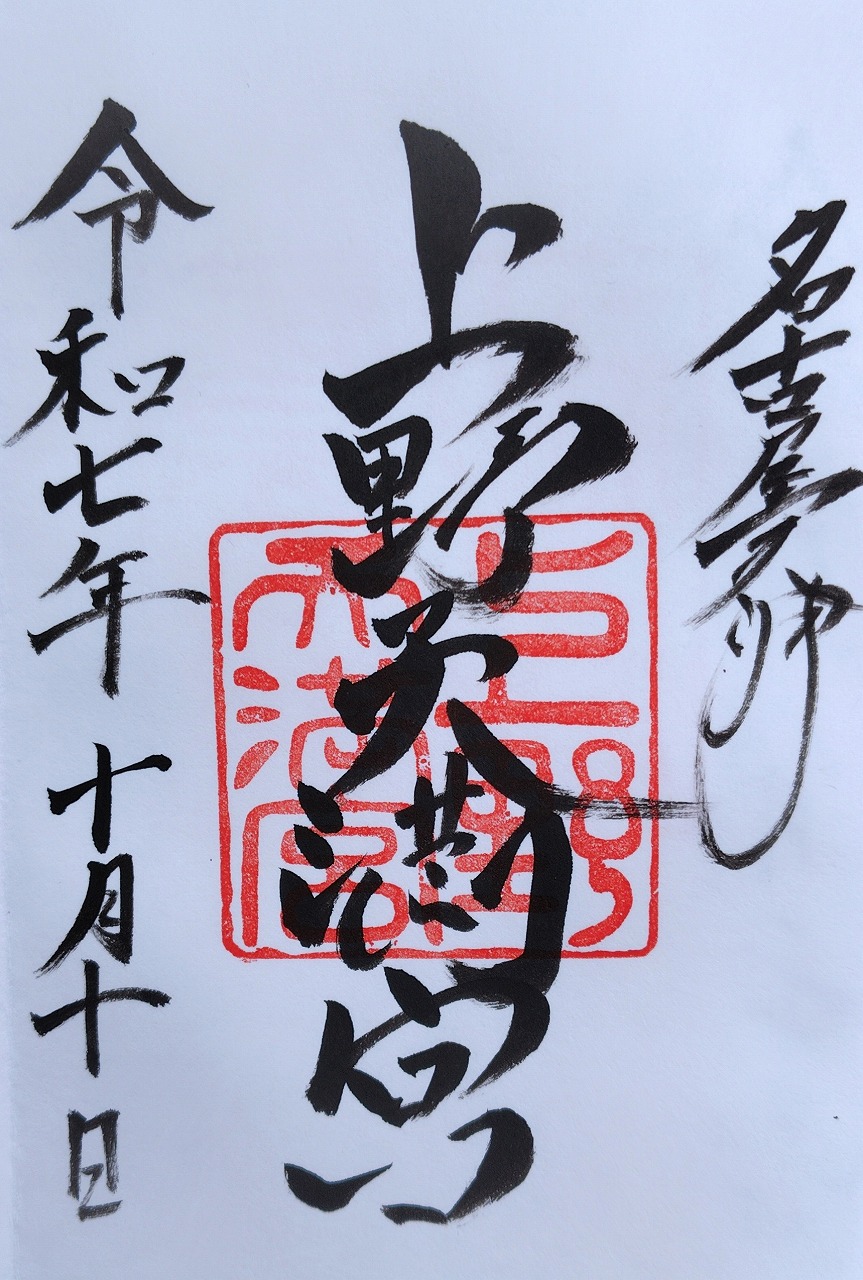 名古屋天神
上野天満宮
上野
天満宮
令和七年 十月十日